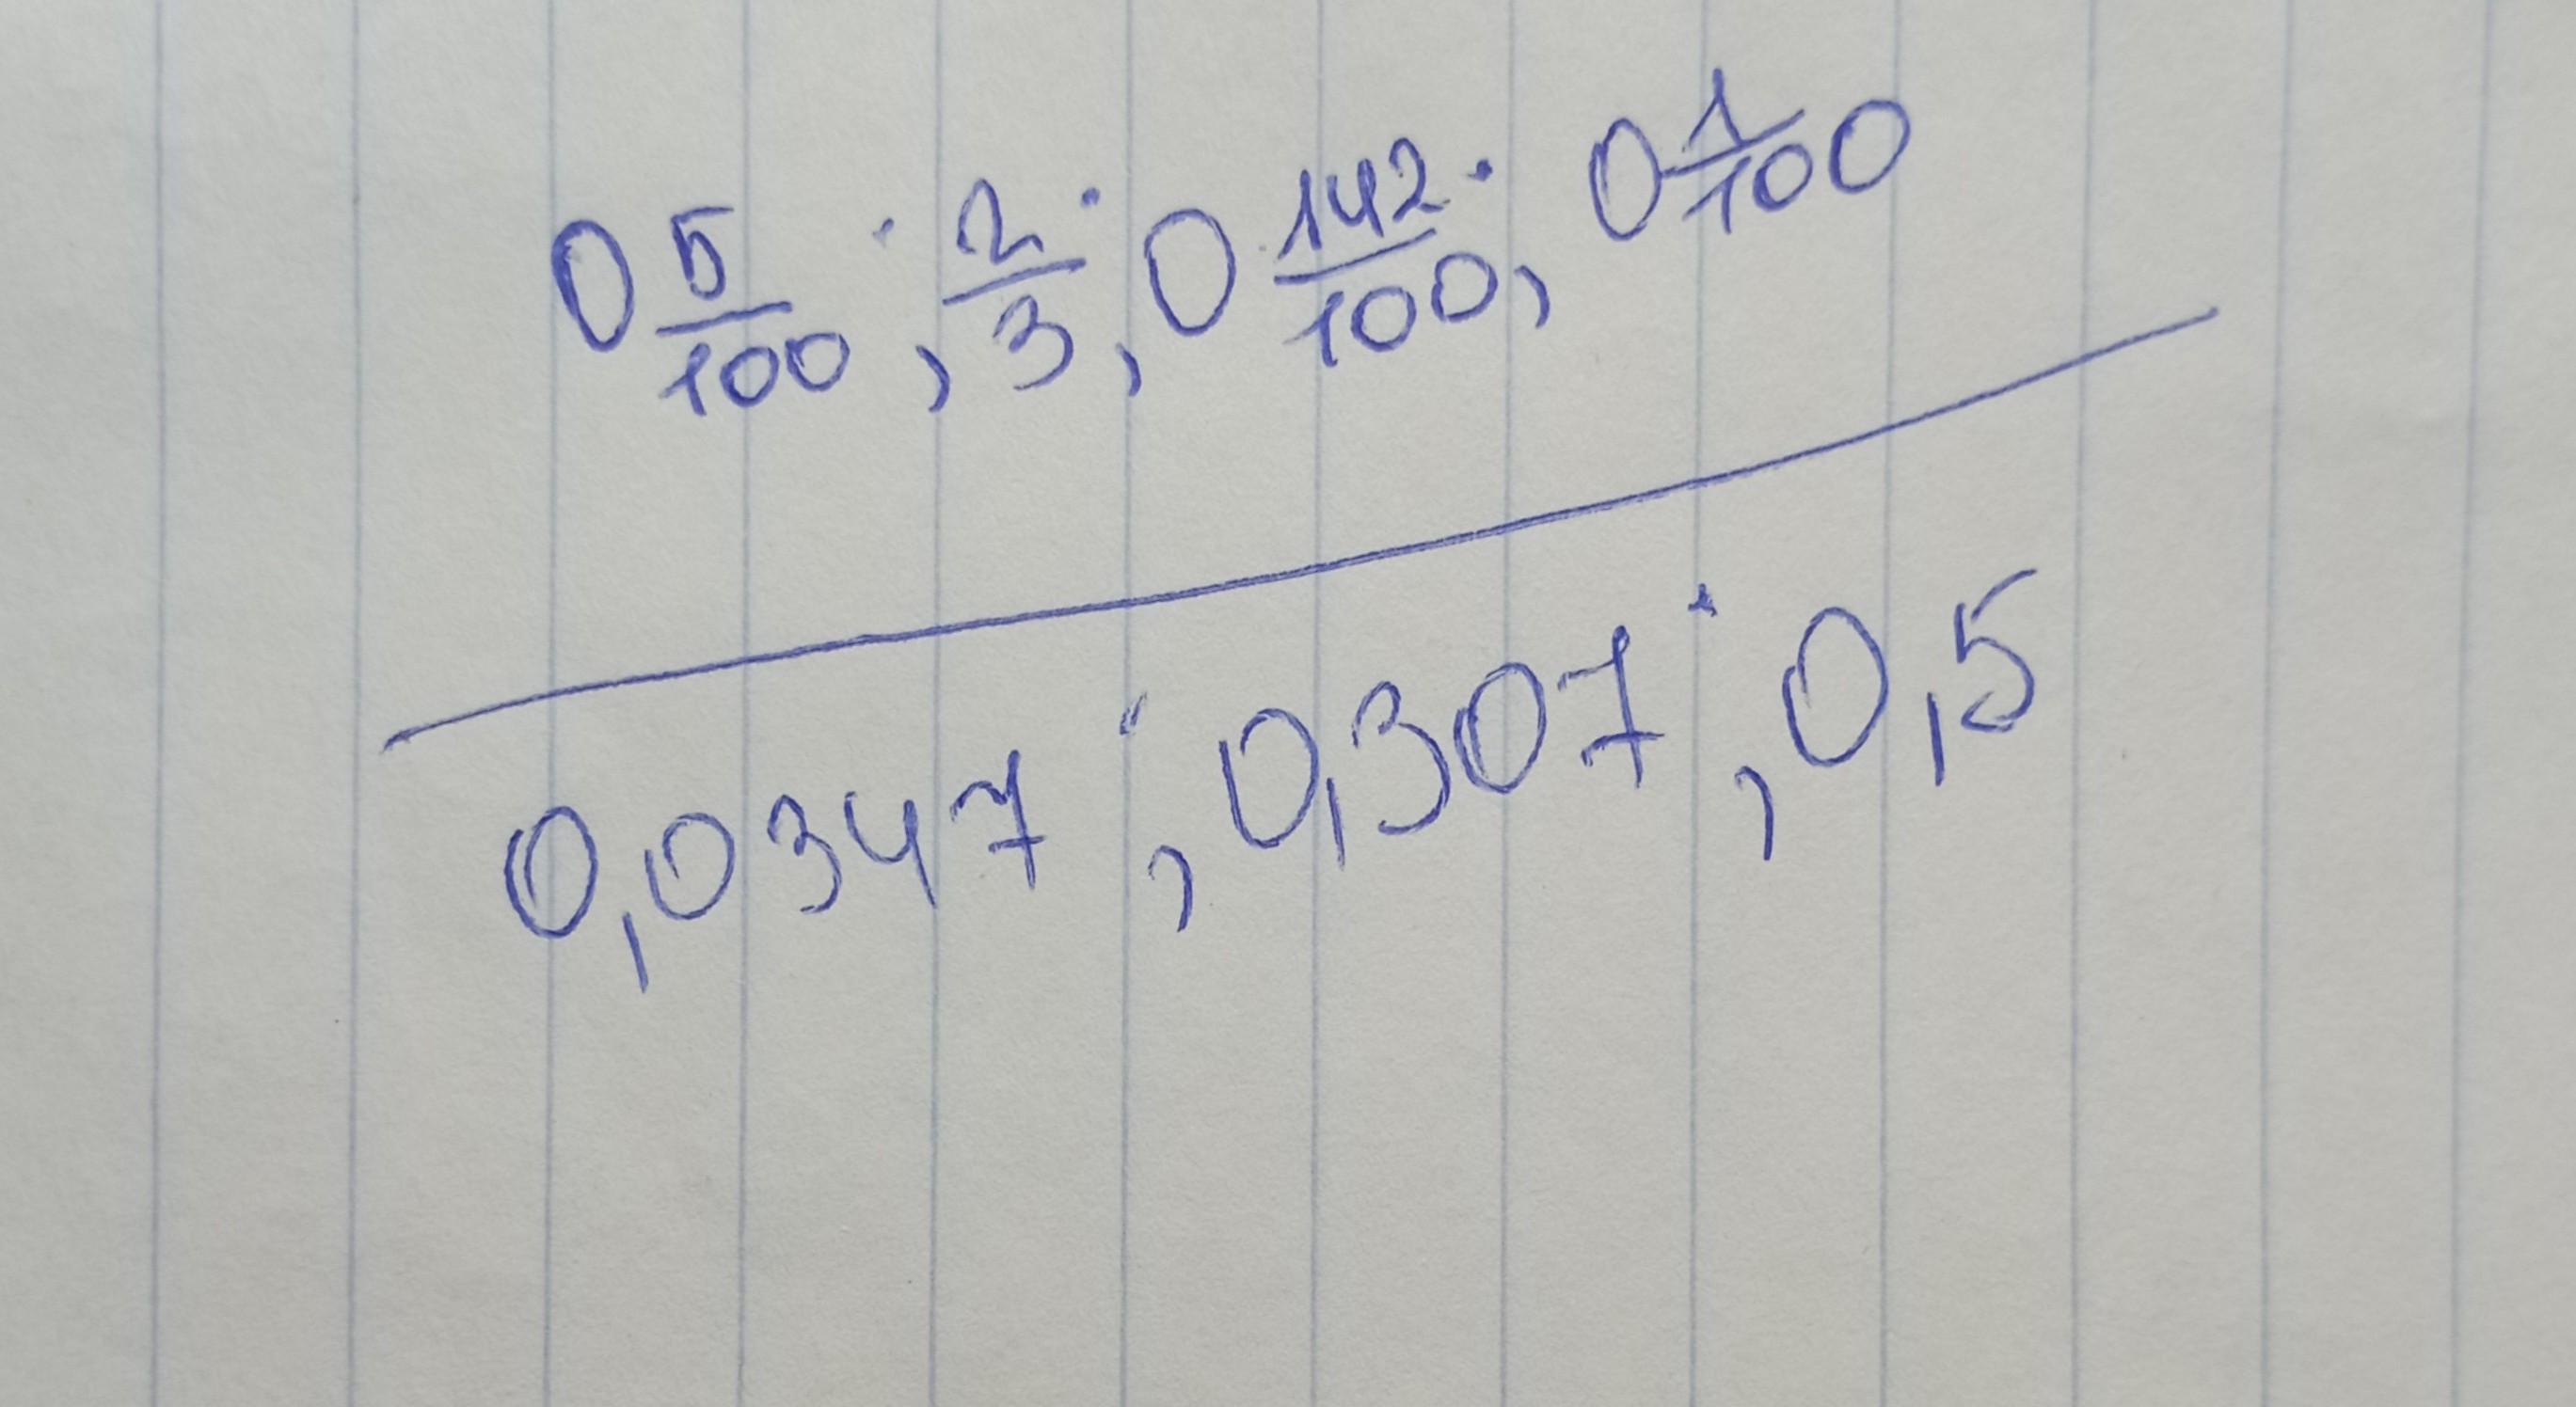 0 5/100 ; 2/3 ; 0 142/100 ; 0 1/100
0,0347 ; 0,307 ; 0,5